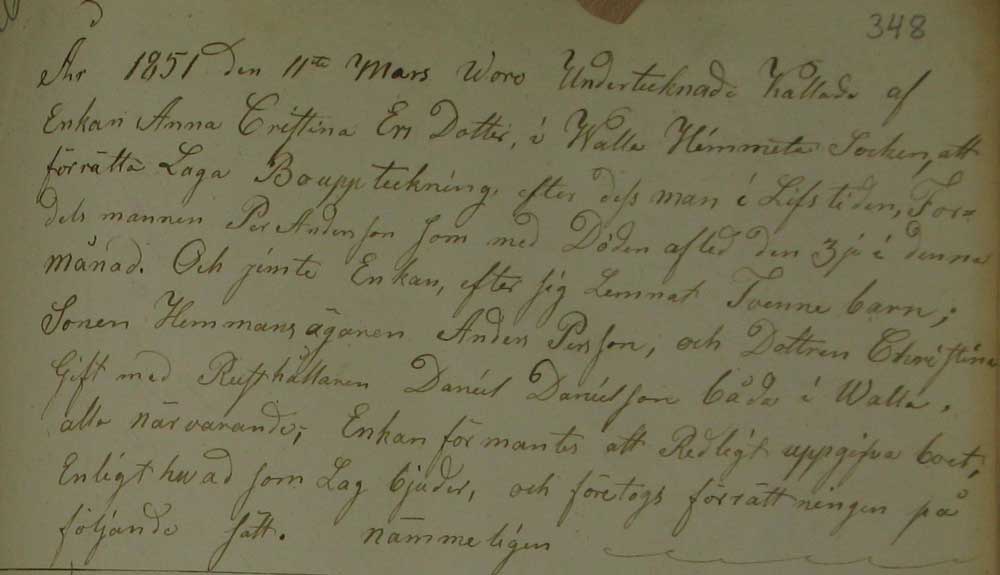 348
Åhr 1851 den 11te Mars Woro Undertecknade Kallade af
Enkan Anna Cristina Ers Dotter, i Walla Himmeta Socken, att
förrätta Laga Bouppteckning, efter dess man i Lifstiden, For=
dels mannen Per Anderson som med Döden afled den 3je i denne
månad. Och jemte Enkan, efter sig Lemnat Tvenne barn;
Sonen Hemmansägaren Anders Persson, och Dottren Christina
Gift med Rusthållaren Daniel Danielsson båda i Walla,
alla närvarande; Enkan förmantes att Redligt uppgifva boet,
Enligt hwad som Lag bjuder, och företogs förrättningen på
följande sätt. nämmeligen